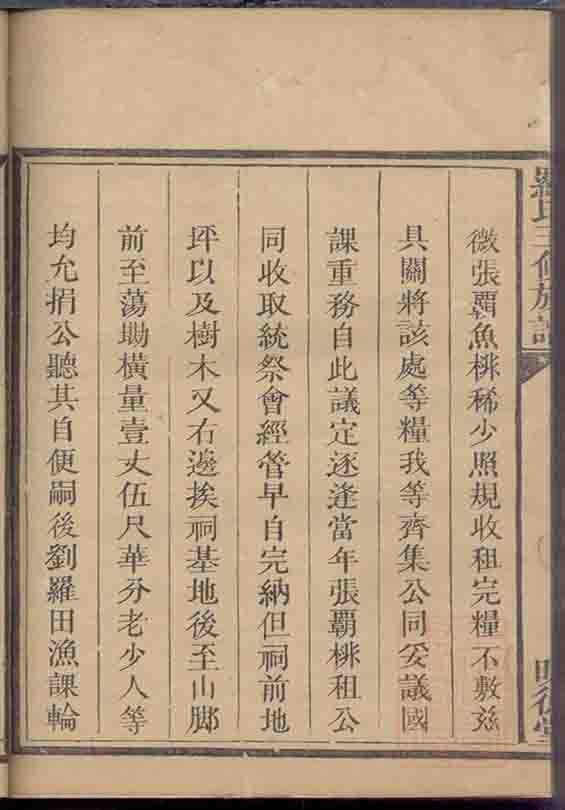 羅氏三修族譜
微張覇魚椑稀少照規收租完糧不敷茲
具關將該處等糧我等齊集公同妥議國
課重務自此議定逐逢當年張覇椑租公
同收取統祭會經管早自完納但祠前地
坪以及樹木又右邊挨祠基地後至山脚
前至蕩坳橫量壹丈伍尺華分老少人等
均允捐公聽其自便嗣後劉羅田漁課輪